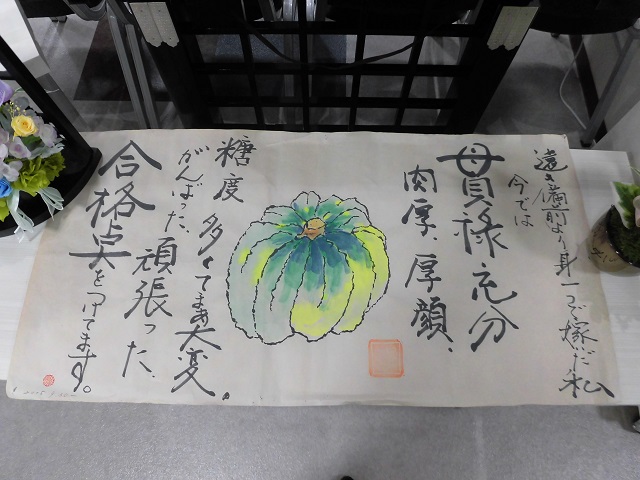 遠き備前より身一つで嫁いだ私
今では
貫禄充分
肉厚、厚顔、
糖度多くてまあ大変。
がんばった、頑張った、
合格点をつけてます。